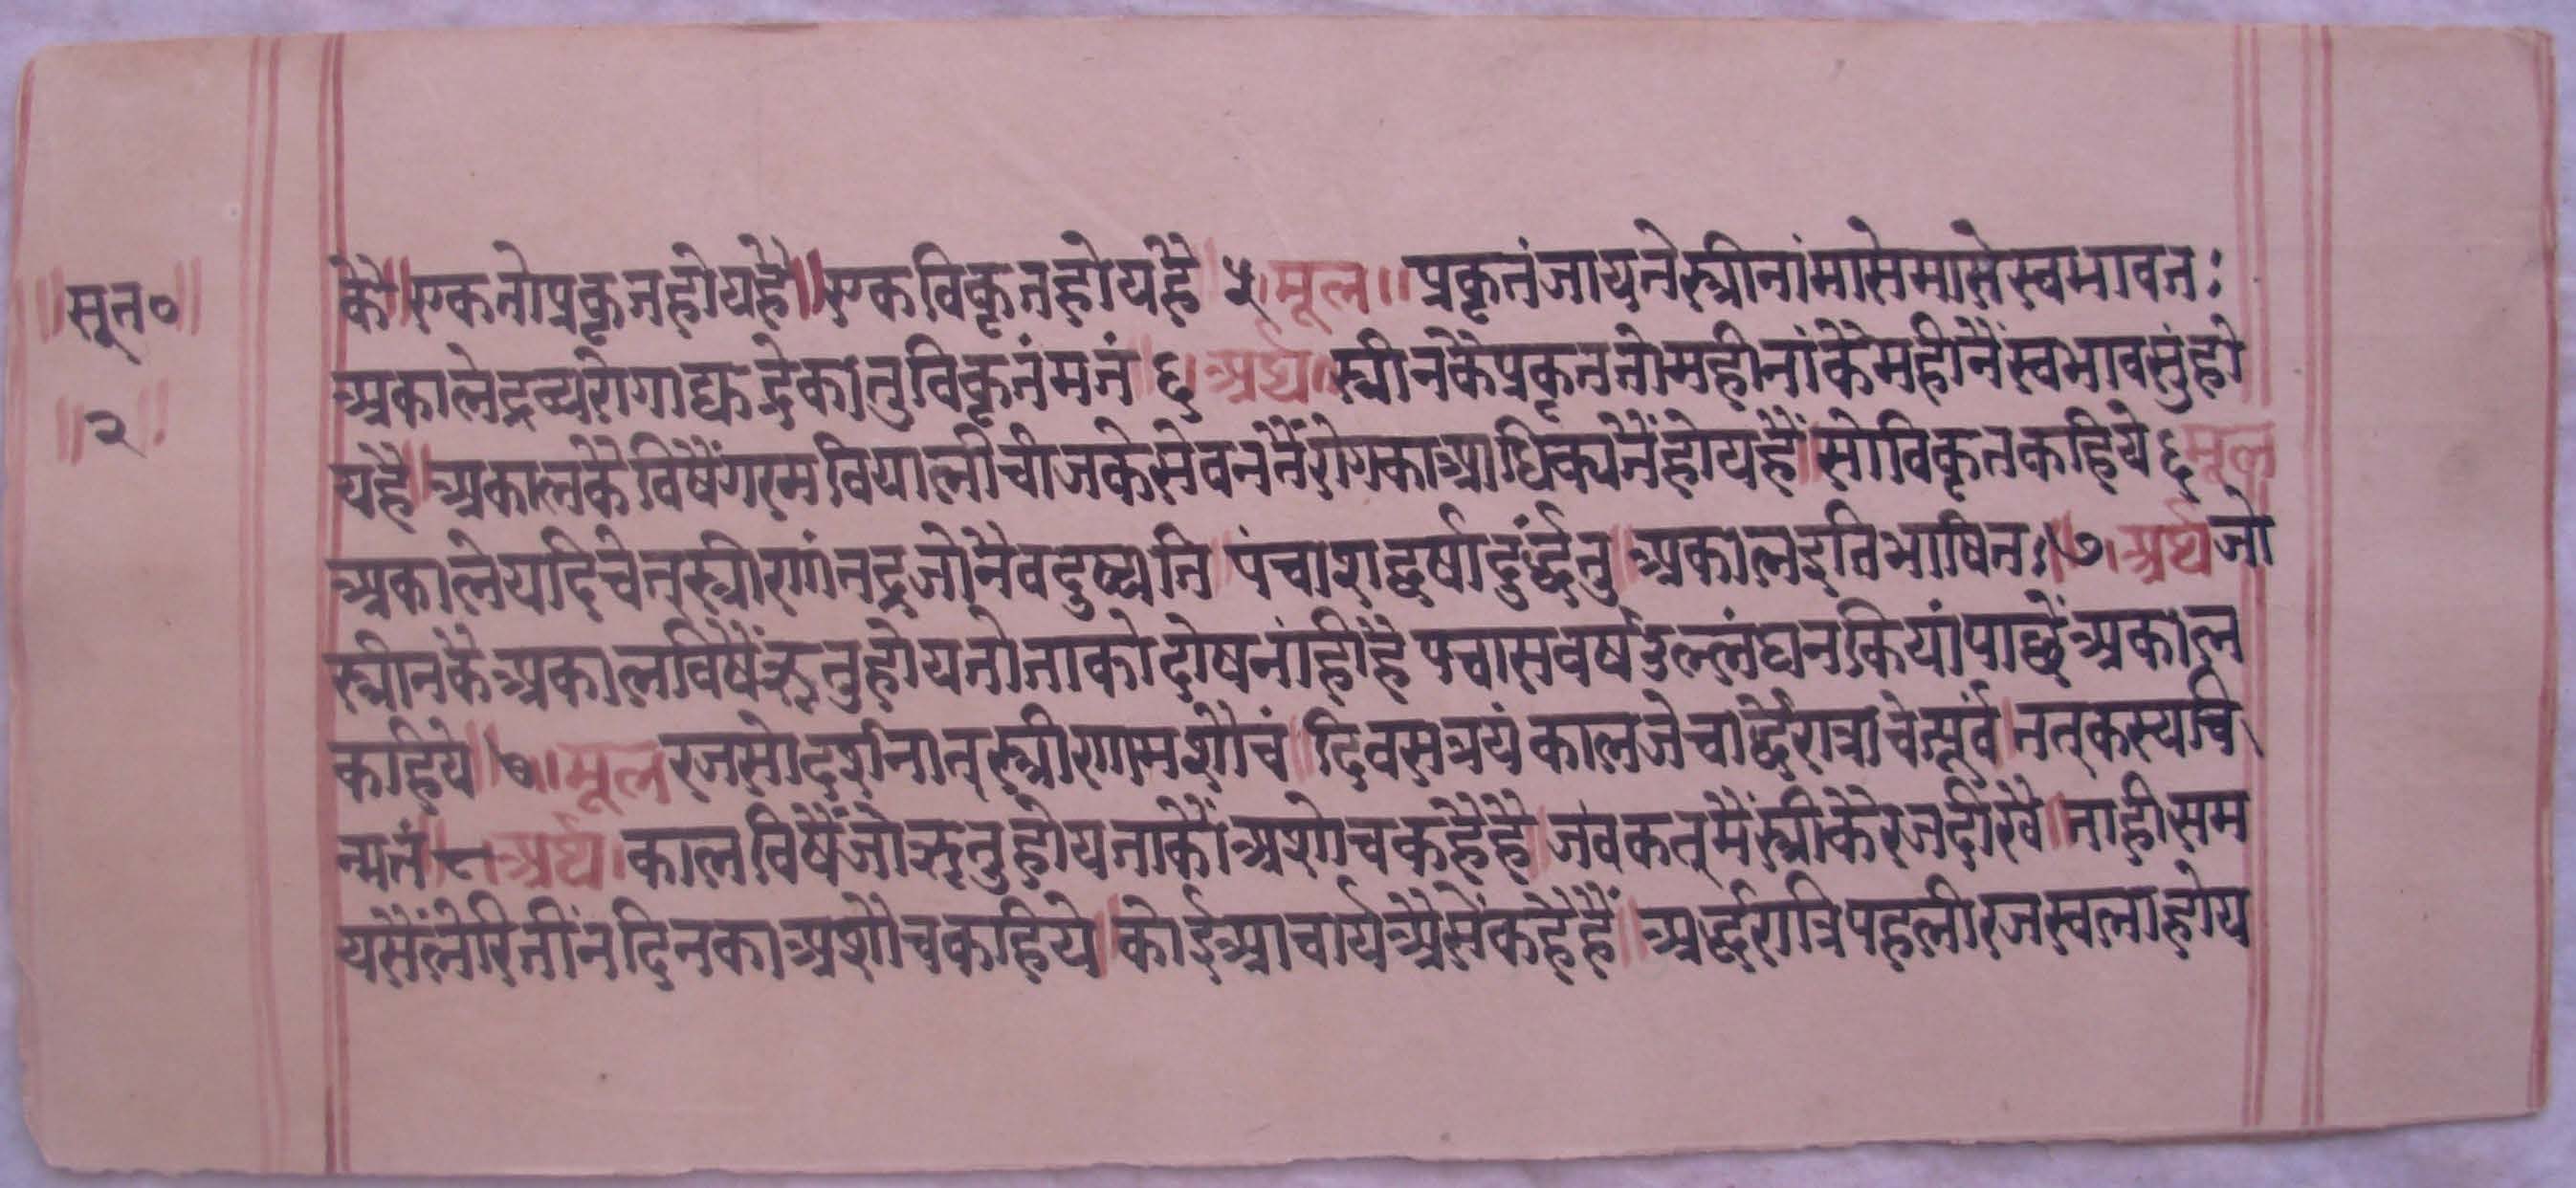 ॥सूत०॥
॥२॥
कै॥एकतोप्रकृतहोयहै॥एकविकृतहोयहै ५।मूल॥प्रकृतंजायतेस्त्रीनांमासेमासेस्वभावतः
अकालेद्रव्यरोगाद्यद्रेकातुविकृतंमतं ॥६॥अर्थ॥स्त्रीनकैप्रकृततोमहीनांकैमहीनैंस्वभावसुंहो
यहै॥अकालकैविषैंगरमवियालीचीजकेसेवनतैंरोगकाआधिक्यतैंहोयहैं॥सोविकृतकहिये६मूल
अकालेयदिचेत्स्त्रीणांतद्रजोनैवदुष्यति॥पंचाशद्वर्षादुर्द्धंतु॥अकालइतिभाषित।॥७।अर्थजो
स्त्रीनकैअकालविषैंऋतुहोयतोताकोदोषनांहींहै पचासवर्षउल्लंघनकियांपाछैंअकाल
कहिये॥७॥मूलरजसोदर्शनात्स्त्रीणामशौचं॥दिवसत्रयं कालजेचार्द्धरात्राचेत्पूर्वं॥तत्कस्यचि
न्मतं॥८॥अर्थ।कालविषैंजोऋतुहोयताकौंअशोचकहैहै॥जवकत्मैंस्त्रीकेरजदींखै॥ताहीसम
यसैंलेरितींनदिनकाअशौचकहिये॥कोईआचार्यअैसेंकहैहैं॥अर्द्धरात्रिपहलीरजस्वलाहोय